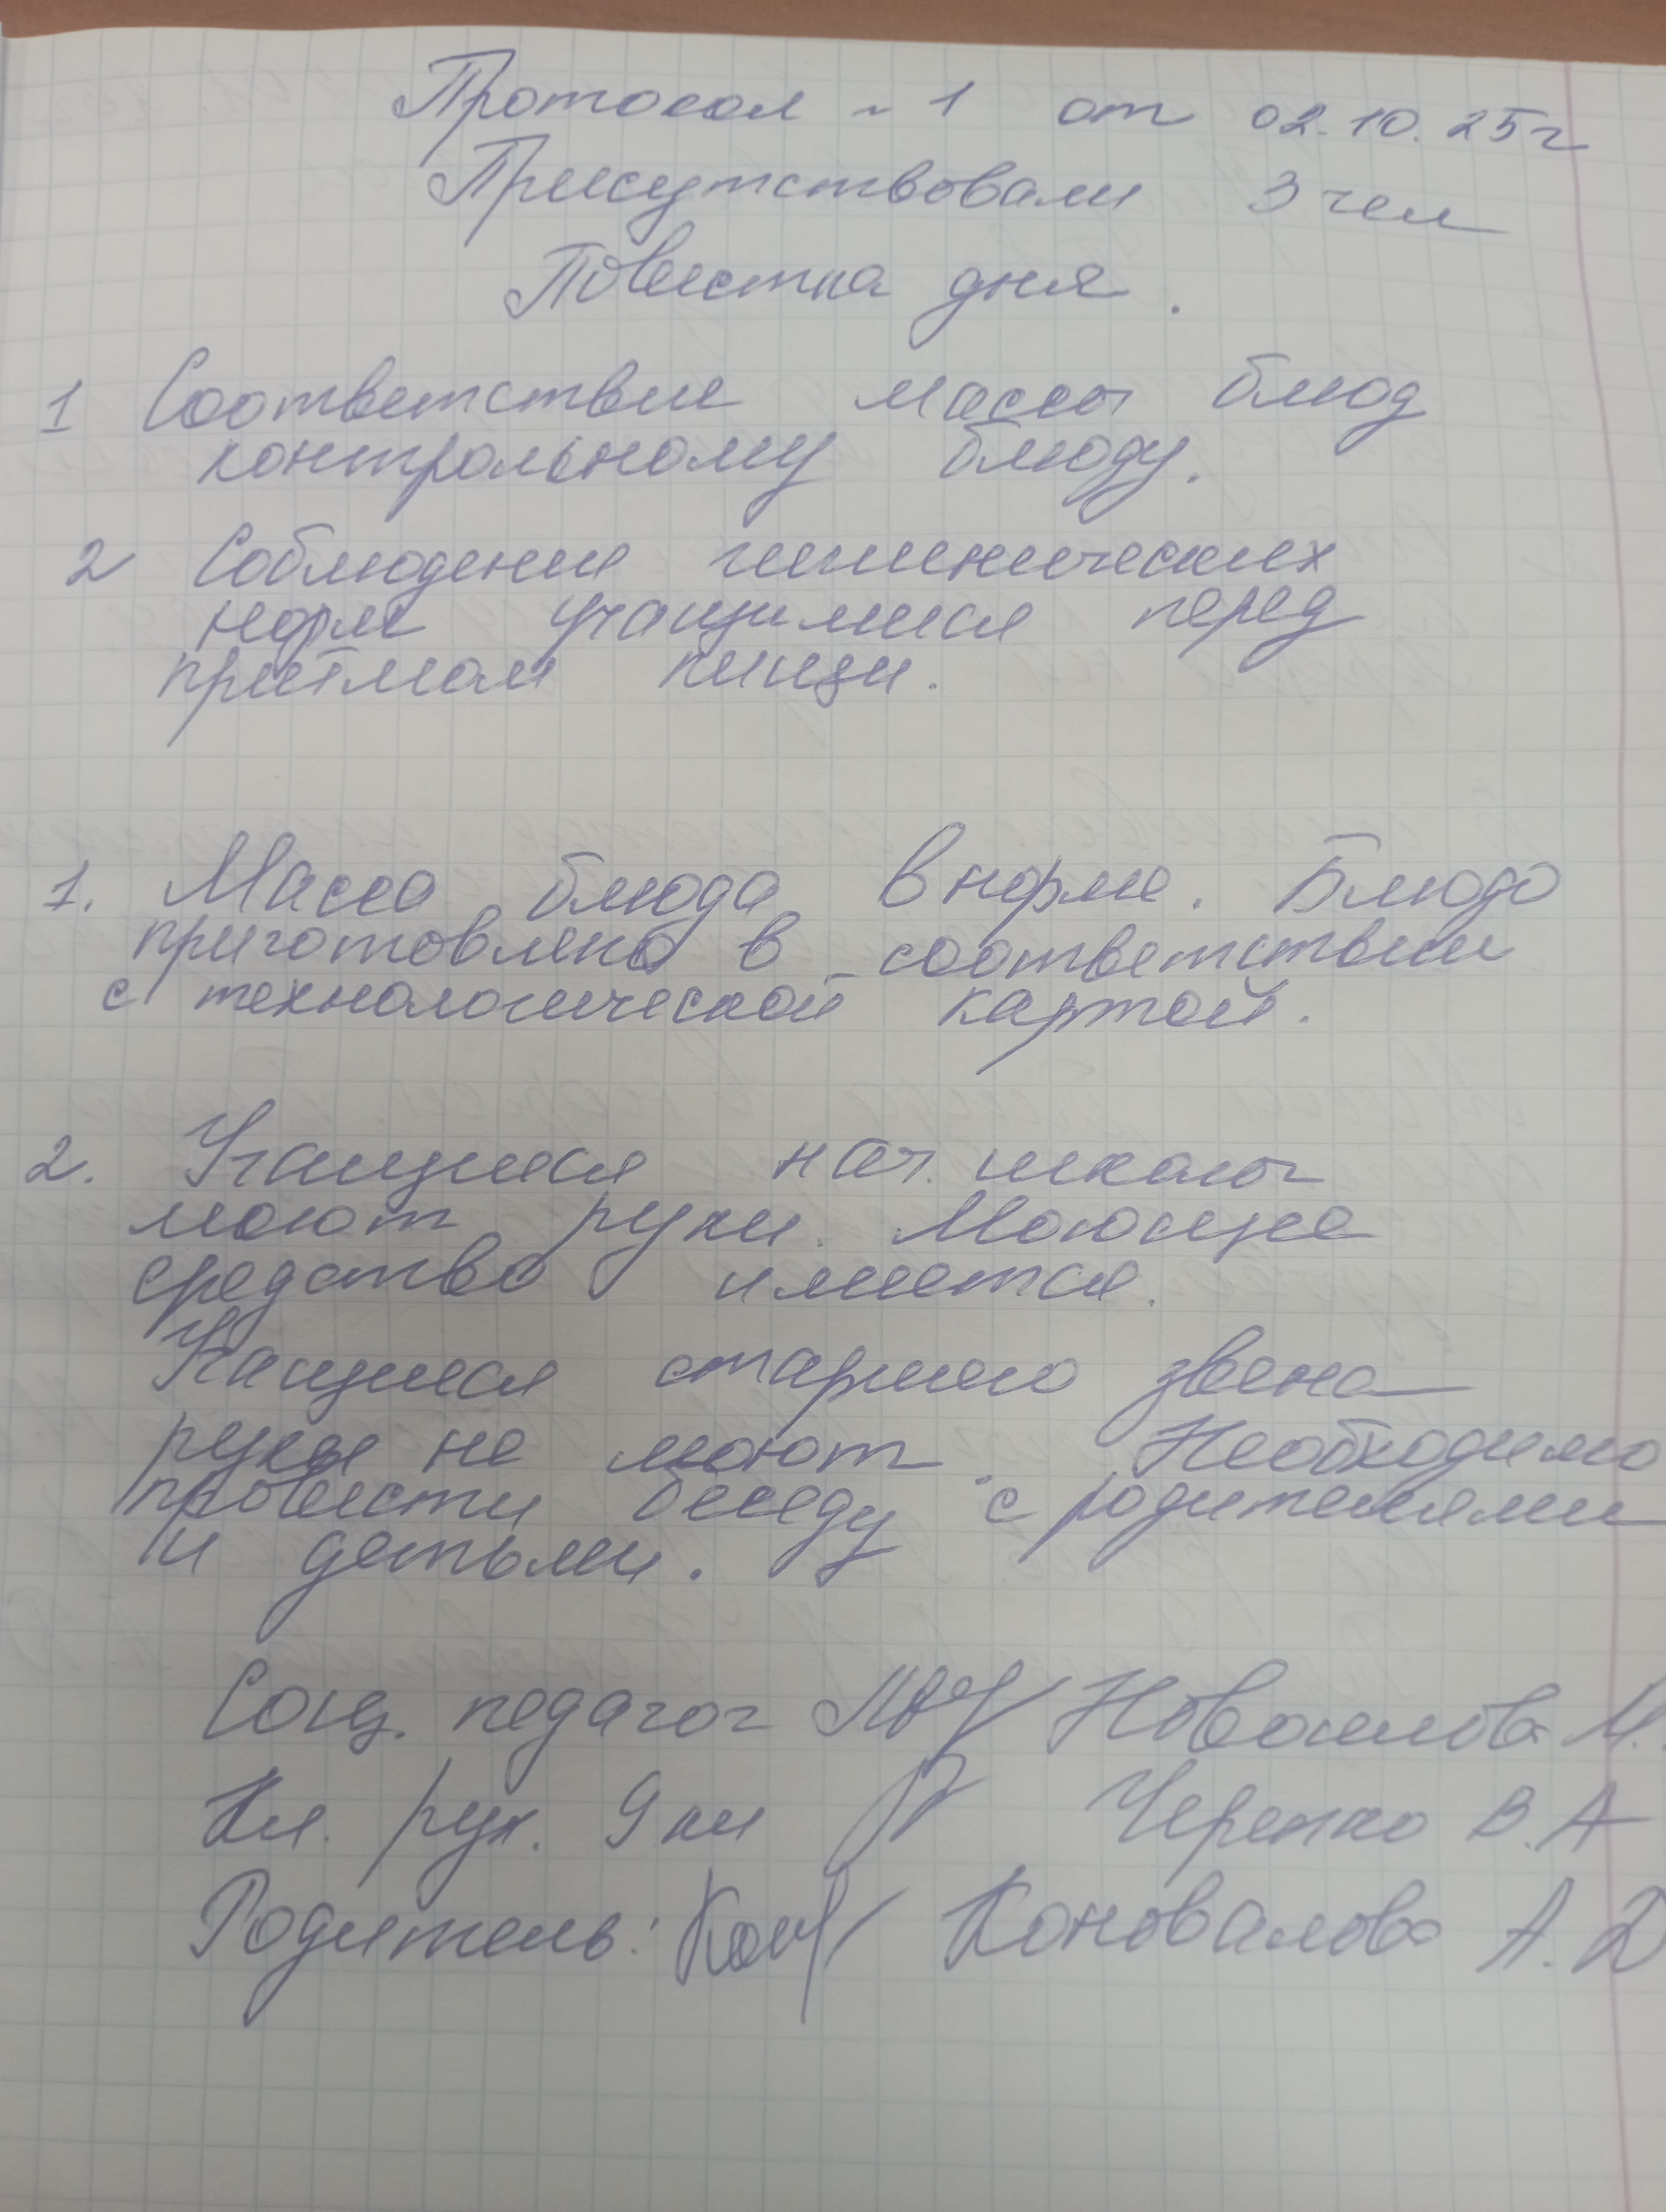 Протокол ~ 1 от 02.10.25г
Присутствовали 3 чел
Повестка дня.
1 Соответствие массы блюд
контрольному блюду.
2 Соблюдение гигиенических
норм учащимися перед
приёмом пищи.
1. Масса блюда в норме. Блюдо
приготовлено в соответствии
с технологической картой.
2. Учащиеся нач. школы
моют руки. Моющее
средство имеется.
Учащиеся старшего звена
руки не моют. Необходимо
провести беседу с родителями
и детьми.
Соц. педагог М.
Кл. рук. 9 кл В.А
Родитель: Коновалова А.Д